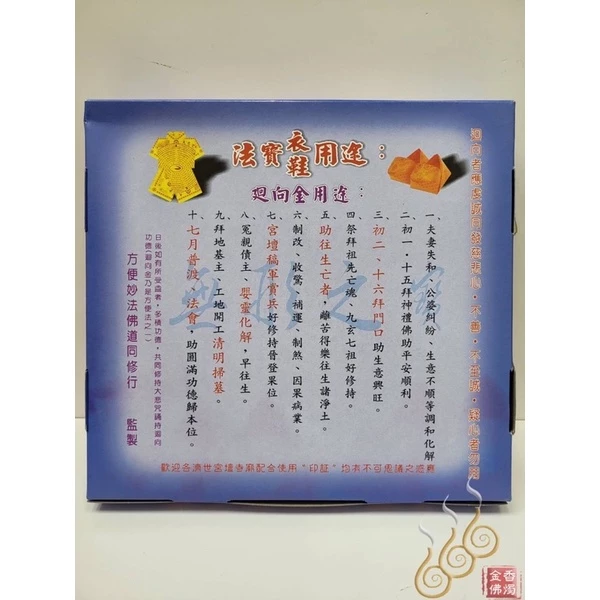 法寶衣鞋用途：
廻向金用途：
一、夫妻失和、公婆糾紛、生意不順等調和化解
二、初一、十五拜神禮佛助平安順利。
三、初二、十六拜門口助生意興旺。
四、祭拜祖先亡魂、九玄七祖好修持。
五、助往生亡者，離苦得樂往生諸淨土。
六、制改、收驚、補運、制煞、因果病業。
七、宮壇犒軍賞兵好修持晉登果位。
八、冤親債主、嬰靈化解，早往生。
九、拜地基主、工地開工清明掃墓。
十、七月普渡、法會，助圓滿功德歸本位。
日後如有所受益者，多積功德，共同修持大悲咒誦持廻向
功德（廻向金乃是方便法之一）
方便妙法佛道同修行 監製
歡迎各濟世宮壇寺廟配合使用"印証"均有不可思議之感應
香燭
金佛